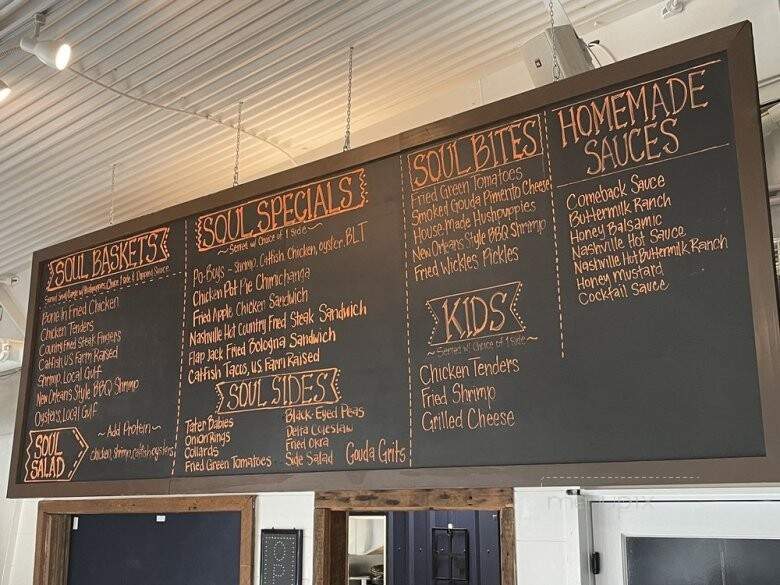 SOUL BASKETS
Bone In Fried Chicken
Chicken Tenders
Country Fried Steak Fingers
Catfish, U.S. Farm Raised
Shrimp, Local Gulf
New Orleans Style BBQ Shrimp
Oysters, Local Gulf
SOUL
SALAD
~ Add Protein ~
chicken, shrimp, catfish, oysters
SOUL SPECIALS
~ Served w/ Choice of 1 side ~
Po-Boys - Shrimp, Catfish, Chicken, oyster, BLT
Chicken Pot Pie Chimichanga
Fried Apple Chicken Sandwich
Nashville Hot Country Fried Steak Sandwich
Flap Jack Fried Bologna Sandwich
Catfish Tacos, U.S. Farm Raised
SOUL SIDES
Tater Babies
Onion Rings
Collards
Fried Green Tomatoes
Black-Eyed Peas
Delta Coleslaw
Fried Okra
Side Salad
Gouda Grits
SOUL BITES
Fried Green Tomatoes
Smoked Gouda Pimento Cheese
House Made Hushpuppies
New Orleans Style BBQ Shrimp
Fried Wickles Pickles
KIDS
~ Served w/ Choice of 1 side ~
Chicken Tenders
Fried Shrimp
Grilled Cheese
HOMEMADE
SAUCES
Comeback Sauce
Buttermilk Ranch
Honey Balsamic
Nashville Hot Sauce
Nashville Hot Buttermilk Ranch
Honey Mustard
Cocktail Sauce